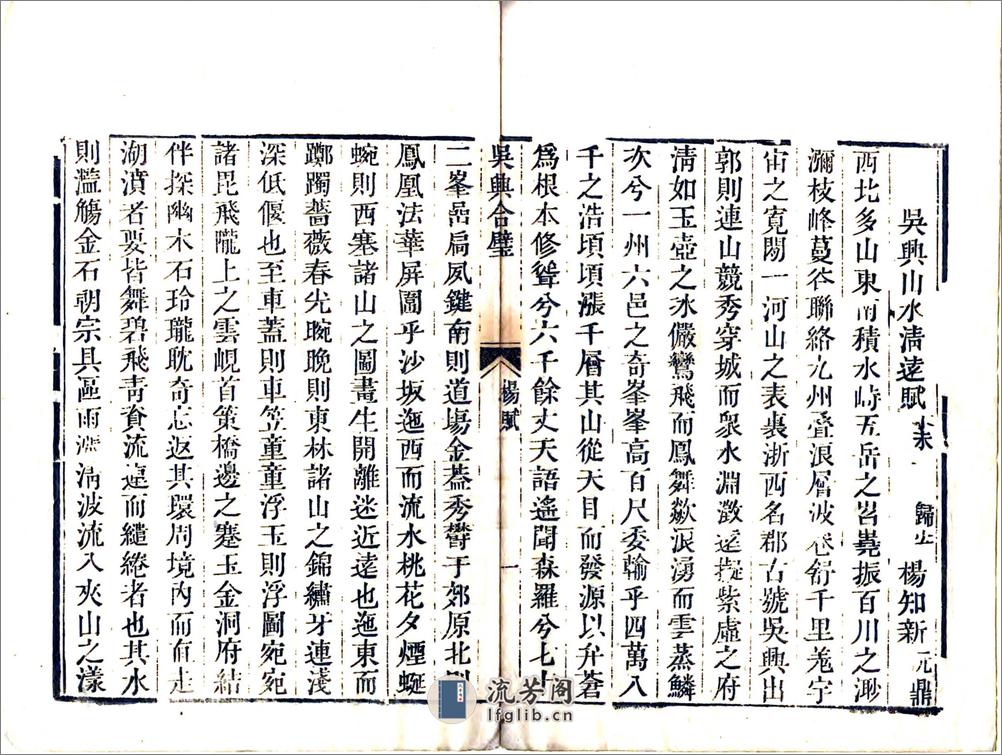 吳興山水清遠賦 歸安 楊知新 元鼎
西北多山東南積水峙五岳之岧嶤振百川之㴽
瀰枝峰蔓谷聯絡九州疊浪層波卷舒千里羗宇
宙之寛閎一河山之表裏浙西名郡古號吳興出
郭則連山競秀穿城而衆水淵澂遠擬紫虛之府
淸如玉壺之冰儼鸞飛而鳳舞歘浪湧而雲蒸鱗
次兮一州六邑之奇峯峯高百尺委輸乎四萬八
千之浩頃頃漲千層其山從天目而發源以弁蒼
爲根本修聳兮六千餘丈天語遙聞森羅兮七十
吳興合璧
楊賦
一
二峯嵒扃夙鍵南則道場金蓋秀鬱于郊原北則
鳳凰法華屏圍乎沙坂迤西而流水桃花夕煙蜒
蜿則西塞諸山之圖畫生開離迷近遠也迤東而
躑躅薔薇春光晼晚則東林諸山之錦繡牙連淺
深低偃也至車蓋則車笠童童浮玉則浮圖宛宛
諸毘飛隴上之雲峴首策橋邊之蹇玉金洞府結
伴探幽木石玲瓏眈奇忘返其環周境內而直走
湖濆者要皆舞碧飛靑資流遠而繾綣者也其水
則濫觴金石朝宗具區雨溪淸波流入夾山之漾
流芳阁
lfglib.cn